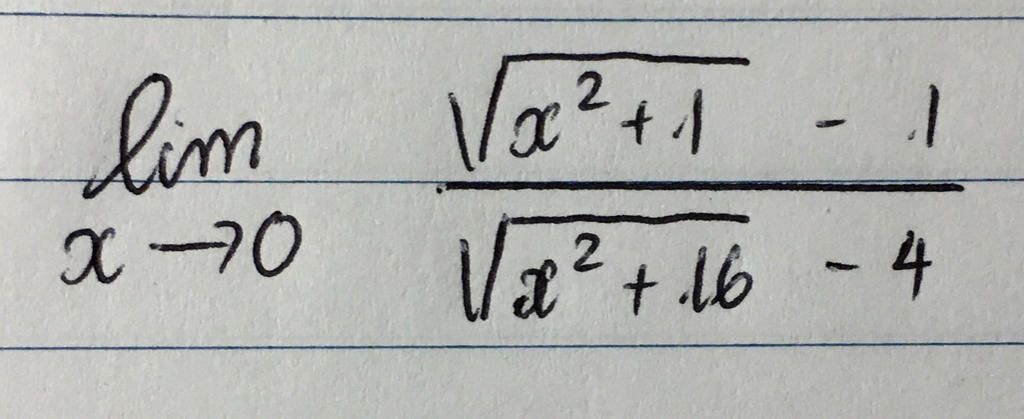 lim x→0 (√(x² + 1) - 1) / (√(x² + 16) - 4)